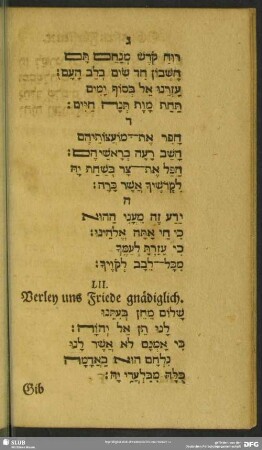 ג
רוּחַ קֹדֶשׁ מְנַחֵם תָּם
חֶשְׁבּוֹן חַד שׂוֹם בְּלֵב הָעָם:
עָזְרֵנוּ אֵל בְּסוֹף יָמִים
תַּחַת מָוֶת תְּנָה חַיִּים:
ד
הָפֵר אֶת־מוֹעֲצוֹתֵיהֶם
הָשֵׁב רָעָה בְרָאשֵׁיהֶם:
הַפֵּל אֶת־צַר בְּשַׁחַת יָהּ
אֲשֶׁר כָּרָה:
ה
יֵדַע זֶה מַעֲנֵי הַהוּא
כִּי חַי אַתָּה אֱלֹהֵינוּ:
כִּי עֶזְרַתָּ לְעַמֶּךָ
מִכָּל־לֵבָב לְקֹוֶיךָ:
LII.
Verley uns Friede gnädiglich.
שָׁלוֹם מְחֵן בְּעִתֵּנוּ
לָנוּ תֵּן אֵל יְהוָֹה:
כִּי אָמְנָם לֹא אֲשֶׁר לָנוּ
נִלְחָם הוּא בָּאֲדָמָה
כֻּלָּהּ מִבַּלְעֲדֵי יָהּ:
Gib
SLUB